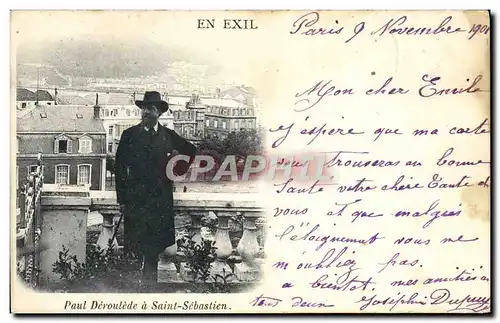 EN EXIL
Paris 9 Novembre 1901
Mon cher Emile
J'espère que ma carte
vous trouveras en bonne
Santé votre chère Tante et
vous et que malgré
l'éloignement vous ne
m'oubliez pas.
a bientôt, mes amitiés a
tous deux Joséphine Dupuy
CPARAMA
Paul Déroulède à Saint-Sébastien.